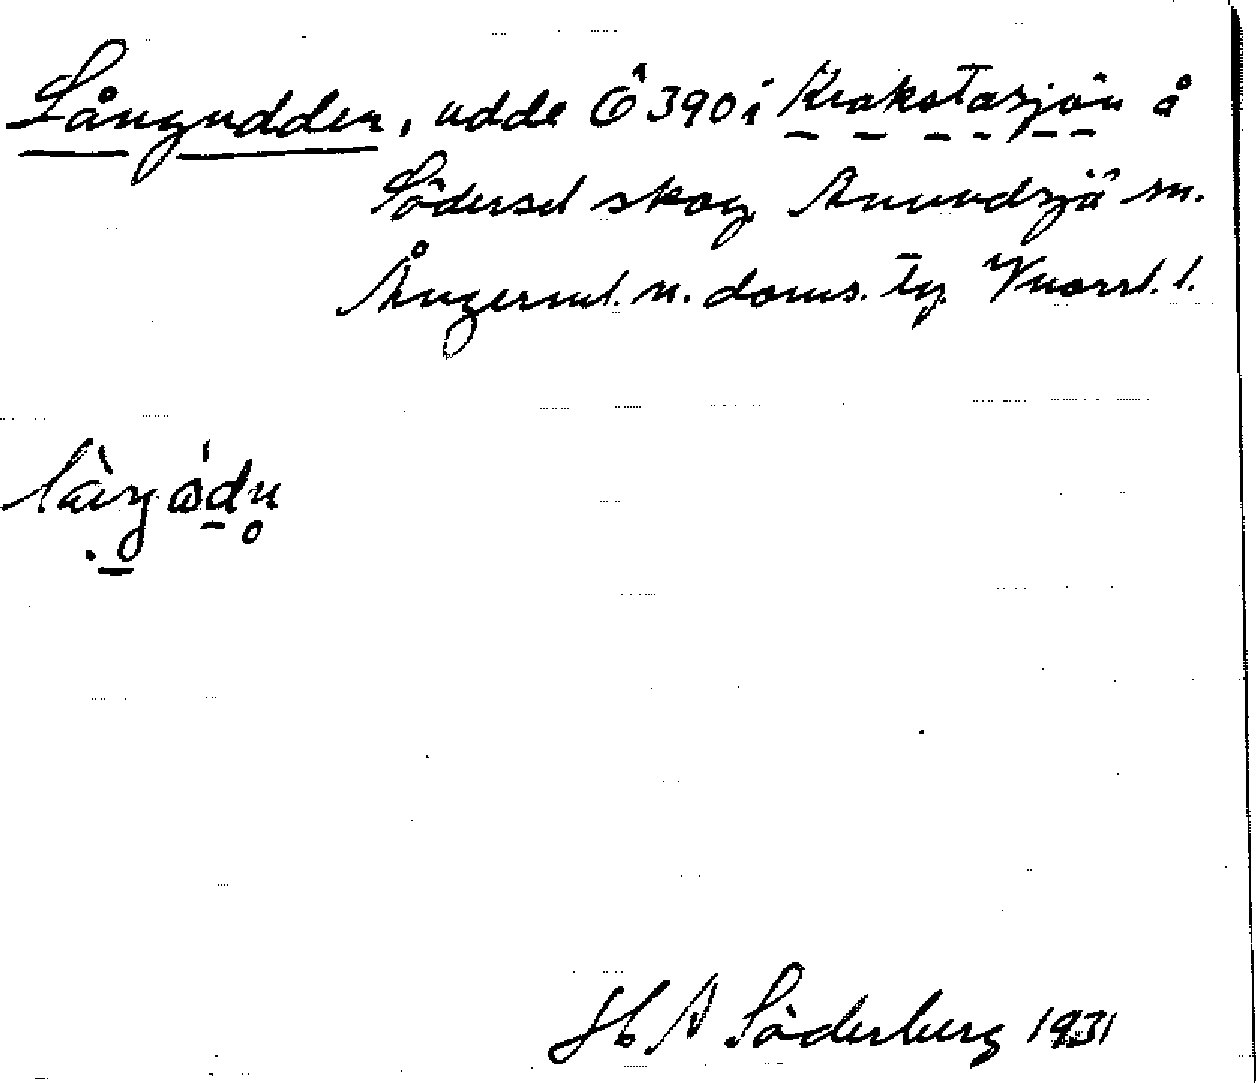 Långudden, udde Ö 390 i Krokstasjön å
Södersel skog Anundsjö sn.
Ångerml. n. doms. tg. Vnorrl. l.
H A Söderberg 1931